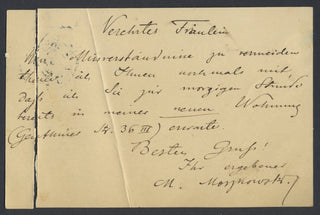 Verehrtes Fräulein
Um Missverständnisse zu vermeiden
theile ich Ihnen nochmals mit
daß ich Sie zur morgigen Stunde
bereits in meiner neuen Wohnung
36 III) erwarte.
Besten Gruß!
Ihr ergebener
M. Moszkowski